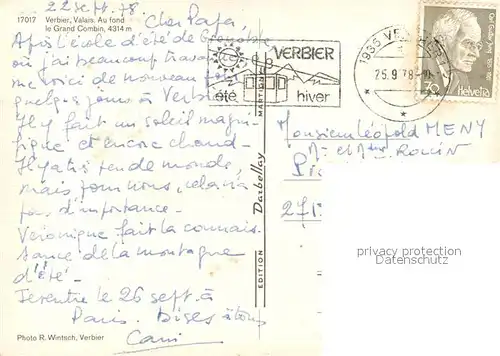 22 sept. 78.
17017 Verbier, Valais. Au fond
le Grand Combin, 4314 m
Cher Papa,
Après l'école d'été de Grenoble
où j'ai beaucoup travaillé
me voici de nouveau pour
quelques jours à Verbier
Il y fait un soleil magni-
fique et encore chaud -
Il y a très peu de monde,
mais pour nous, cela n'a
pas d'importance -
Véronique fait la connais-
sance de la montagne
d'été -
Je rentre le 26 sept. à
Paris. Bises à tous
Photo R. Wintsch, Verbier
EDITION Darbellay MARTIGNY
VERBIER
été hiver
1935 VERBIER
25.9.78
Helvetia
Monsieur Léopold MENY
privacy protection
Datenschutz